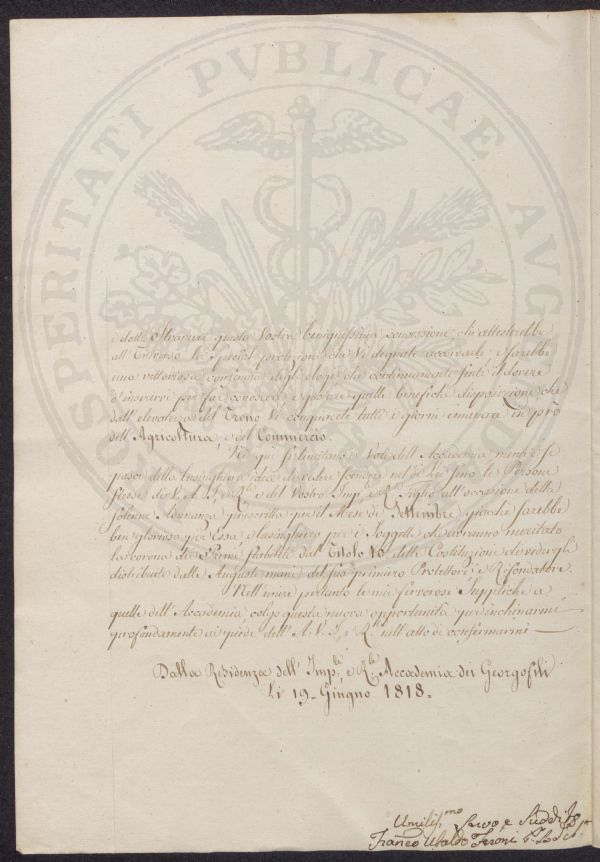 PROSPERITATI PVBLICAE AVGENDAE
e dotte Straniere questa Vostra benignissima concessione, che attesterebbe
all' Universo la special protezione che Vi degnate accordarle, e sarebbe
una vittoriosa conferma degli elogi che continuamente sente il dovere
d'inserirvi per far conoscere e gustare quelle benefiche disposizioni che
dall' elevatezza del Trono Vi compiacete tutti i giorni emanare in pro
dell' Agricoltura, e del Commercio.
Nè qui si limitano i Voti dell' Accademia, mentre si
pasce della lusinghiera idea di vedere scendere nel di Lei seno le Persone
stesse di V. A. I. e R.le e del Vostro Imp.le e R.le Figlio all' occasione della
solenne Adunanza prescritta per il Mese di Settembre, giacchè sarebbe
ben glorioso per Essa, e lusinghiero per i Soggetti che avranno meritato
la Corona dei Premi stabiliti dal Titolo 10 delle Costituzioni, di vedergli
distribuiti dalle Auguste mani del suo primiero Protettore, e Rifondatore.
Nell' unire pertanto le mie fervorose Suppliche a
quelle dell' Accademia colgo questa nuova opportunità per inchinarmi
profondamente ai piedi dell' A. V. I. e R.le nell' atto di confermarmi
Dalla Residenza dell' Imp.le e R.le Accademia dei Georgofili
Li 19. Giugno 1818.
Umiliss.mo Servo e Suddito
Franco Ubaldo Feroni